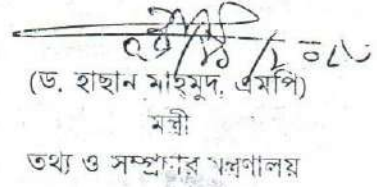 (ড. হাছান মাহমুদ, এমপি)
মন্ত্রী
তথ্য ও সম্প্রচার মন্ত্রণালয়